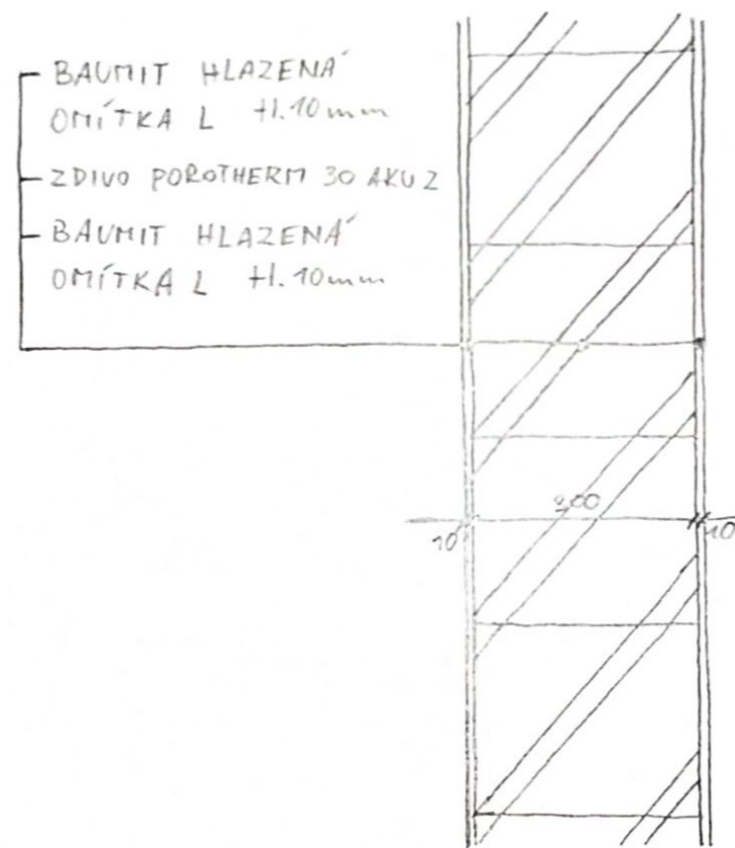 BAUMIT HLAZENÁ
OMÍTKA L tl. 10mm
ZDIVO POROTHERM 30 AKU Z
BAUMIT HLAZENÁ
OMÍTKA L tl. 10mm
300
10
10